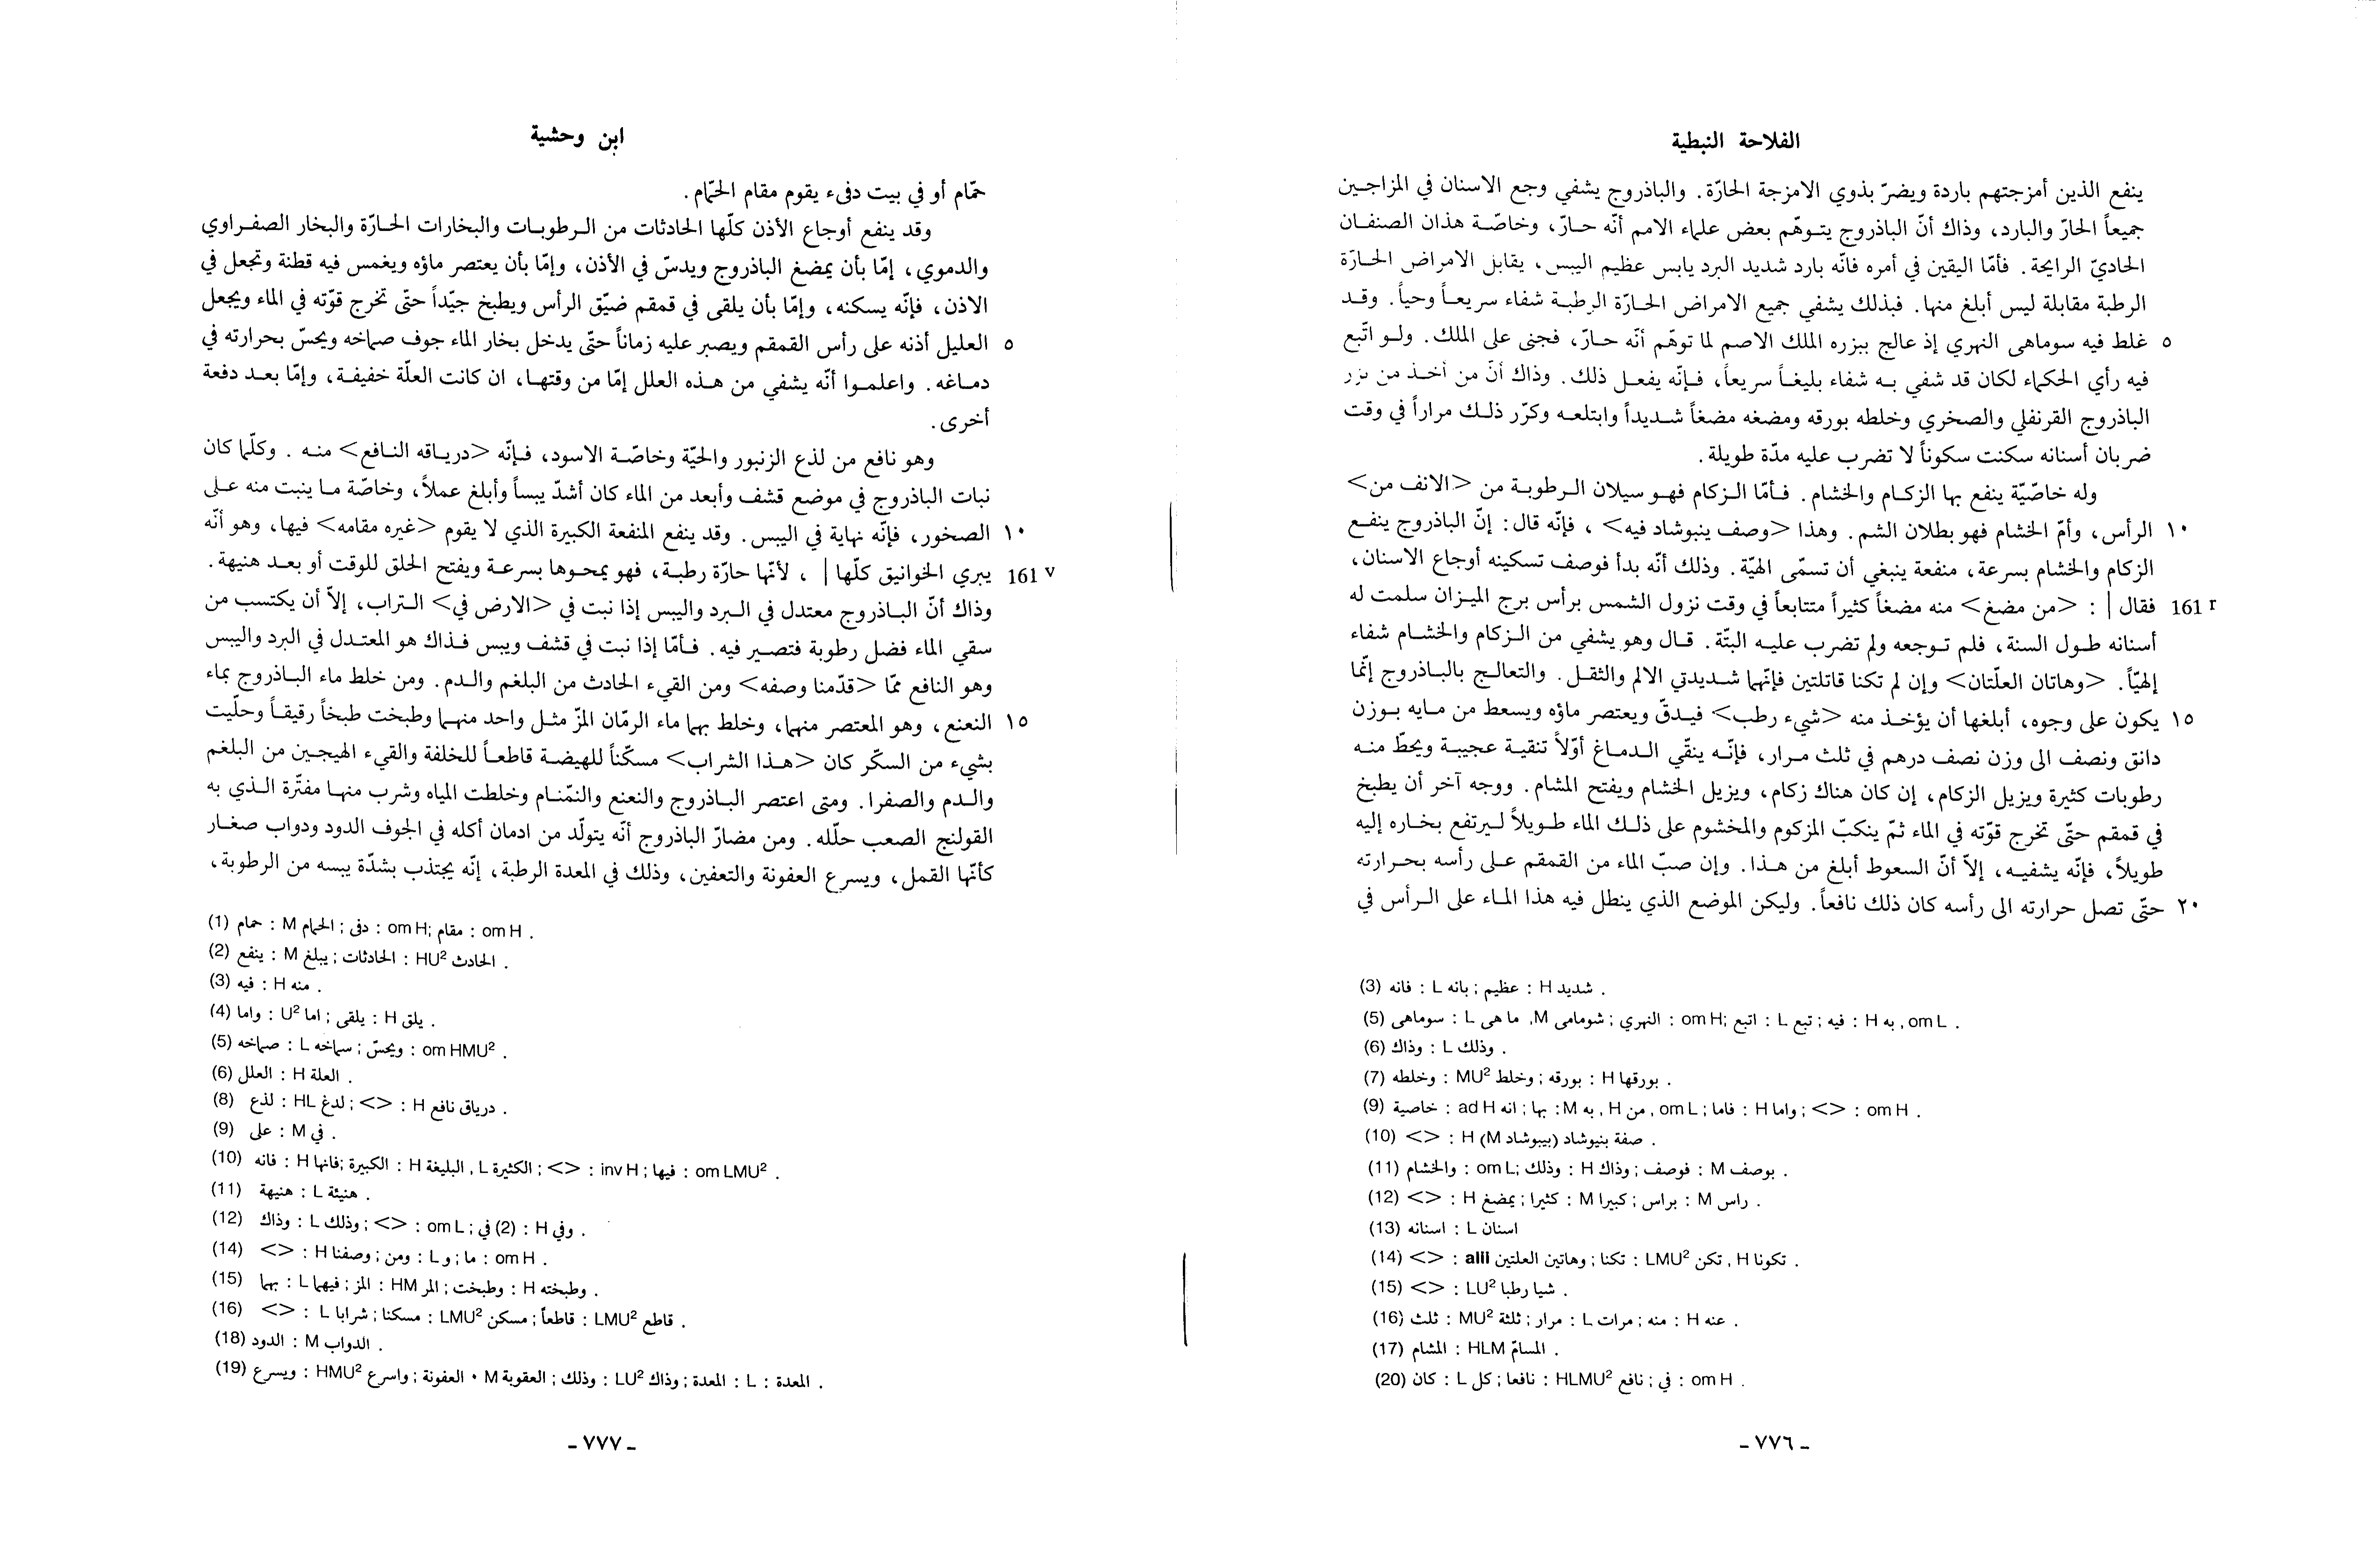 الفلاحة النبطية
ينفع الذين أمزجتهم باردة ويضرّ بذوي الامزجة الحارّة. والباذروج يشفي وجع الاسنان في المزاجين
جميعاً الحارّ والبارد، وذاك أنّ الباذروج يتوهّم بعض علماء الامم أنّه حارّ، وخاصّة هذان الصنفان
الحاديّ الرايحة. فأمّا اليقين في أمره فانّه بارد شديد البرد يابس عظيم اليبس، يقابل الامراض الحارّة
الرطبة مقابلة ليس أبلغ منها. فبذلك يشفي جميع الامراض الحارّة الرطبة شفاء سريعاً وحياً. وقد
٥ غلط فيه سوماهى النهري إذ عالج ببزره الملك الاصم لما توهّم أنّه حارّ، فجنى على الملك. ولو اتّبع
فيه رأي الحكماء لكان قد شفي به شفاء بليغاً سريعاً، فإنّه يفعل ذلك. وذاك أنّ من أخذ من بزر
الباذروج القرنفلي والصخري وخلطه بورقه ومضغه مضغاً شديداً وابتلعه وكرّر ذلك مراراً في وقت
ضربان أسنانه سكنت سكوناً لا تضرب عليه مدّة طويلة.
وله خاصّيّة ينفع بها الزكام والخشام. فأمّا الزكام فهو سيلان الرطوبة من <الانف من>
١٠ الرأس، وأمّ الخشام فهو بطلان الشم. وهذا <وصف ينبوشاد فيه>، فإنّه قال: إنّ الباذروج ينفع
الزكام والخشام بسرعة، منفعة ينبغي أن تسمّى الهيّة. وذلك أنّه بدأ فوصف تسكينه أوجاع الاسنان،
161 r فقال | : <من مضغ> منه مضغاً كثيراً متتابعاً في وقت نزول الشمس برأس برج الميزان سلمت له
أسنانه طول السنة، فلم توجعه ولم تضرب عليه البتّة. قال وهو يشفي من الزكام والخشام شفاء
إلهيّاً. <وهاتان العلّتان> وإن لم تكنا قاتلتين فإنّهما شديدتي الالم والثقل. والتعالج بالباذروج إنّما
١٥ يكون على وجوه، أبلغها أن يؤخذ منه <شيء رطب> فيدقّ ويعتصر ماؤه ويسعط من مايه بوزن
دانق ونصف الى وزن نصف درهم في ثلث مرار، فإنّه ينقّي الدماغ أوّلاً تنقية عجيبة ويحطّ منه
رطوبات كثيرة ويزيل الزكام، إن كان هناك زكام، ويزيل الخشام ويفتح المشام. ووجه آخر أن يطبخ
في قمقم حتّى تخرج قوّته في الماء ثمّ ينكبّ المزكوم والمخشوم على ذلك الماء طويلاً ليرتفع بخاره إليه
طويلاً، فإنّه يشفيه، إلاّ أنّ السعوط أبلغ من هذا. وإن صبّ الماء من القمقم على رأسه بحرارته
٢٠ حتّى تصل حرارته الى رأسه كان ذلك نافعاً. وليكن الموضع الذي ينطل فيه هذا الماء على الرأس في
(3) فانه : L بانه ; عظيم : H شديد .
(5) سوماهى : L ما هى, M شومامى ; النهري : om H; اتبع : L تبع ; فيه : H به, om L .
(6) وذاك : L وذلك .
(7) وخلطه : MU² وخلط ; بورقه : H بورقها .
(9) خاصية : ad H انه ; بها : M به, H من, om L ; فاما : H واما ; <> : om H .
(10) <> : H (M بيبوشاد) صفة بنيوشاد .
(11) والخشام : om L; وذلك : H وذاك ; فوصف : M بوصف .
(12) <> : H يمضغ ; كثيرا : M كبيرا ; براس : M راس .
(13) اسنانه : L اسنان
(14) <> : alii وهاتين العلتين ; تكنا : LMU² تكن, H تكونا .
(15) <> : LU² شيا رطبا .
(16) ثلث : MU² ثلثة ; مرار : L مرات ; منه : H عنه .
(17) المشام : HLM المسامّ .
(20) كان : L كل ; نافعا : HLMU² نافع ; في : om H .
ـ ٧٧٦ ـ
ابن وحشية
حمّام أو في بيت دفىء يقوم مقام الحمّام.
وقد ينفع أوجاع الأذن كلّها الحادثات من الرطوبات والبخارات الحارّة والبخار الصفراوي
والدموي، إمّا بأن يمضغ الباذروج ويدسّ في الأذن، وإمّا بأن يعتصر ماؤه ويغمس فيه قطنة وتجعل في
الاذن، فإنّه يسكنه، وإمّا بأن يلقى في قمقم ضيّق الرأس ويطبخ جيّداً حتّى تخرج قوّته في الماء ويجعل
٥ العليل أذنه على رأس القمقم ويصبر عليه زماناً حتّى يدخل بخار الماء جوف صماخه ويحسّ بحرارته في
دماغه. واعلموا أنّه يشفي من هذه العلل إمّا من وقتها، ان كانت العلّة خفيفة، وإمّا بعد دفعة
أخرى.
وهو نافع من لذع الزنبور والحيّة وخاصّة الاسود، فإنّه <درياقه النافع> منه. وكلّما كان
نبات الباذروج في موضع قشف وأبعد من الماء كان أشدّ يبساً وأبلغ عملاً، وخاصّة ما ينبت منه على
١٠ الصخور، فإنّه نهاية في اليبس. وقد ينفع المنفعة الكبيرة الذي لا يقوم <غيره مقامه> فيها، وهو أنّه
161 v يبري الخوانيق كلّها | ، لأنّها حارّة رطبة، فهو يمحوها بسرعة ويفتح الحلق للوقت أو بعد هنيهة.
وذاك أنّ الباذروج معتدل في البرد واليبس إذا نبت في <الارض في> التراب، إلاّ أن يكتسب من
سقي الماء فضل رطوبة فتصير فيه. فأمّا إذا نبت في قشف ويبس فذاك هو المعتدل في البرد واليبس
وهو النافع ممّا <قدّمنا وصفه> ومن القيء الحادث من البلغم والدم. ومن خلط ماء الباذروج بماء
١٥ النعنع، وهو المعتصر منهما، وخلط بهما ماء الرمّان المزّ مثل واحد منهما وطبخت طبخاً رقيقاً وحلّيت
بشيء من السكّر كان <هذا الشراب> مسكّناً للهيضة قاطعاً للخلفة والقيء الهيجين من البلغم
والدم والصفرا. ومتى اعتصر الباذروج والنعنع والنمّام وخلطت المياه وشرب منها مفتّرة الذي به
القولنج الصعب حلّله. ومن مضارّ الباذروج أنّه يتولّد من ادمان أكله في الجوف الدود ودواب صغار
كأنّها القمل، ويسرع العفونة والتعفين، وذلك في المعدة الرطبة، إنّه يجتذب بشدّة يبسه من الرطوبة،
(1) حمام : M الحمام ; دفى : om H; مقام : om H .
(2) ينفع : M يبلغ ; الحادثات : HU² الحادث .
(3) فيه : H منه .
(4) واما : U² اما ; يلقى : H يلق .
(5) صماخه : L سماخه ; ويحسّ : om HMU² .
(6) العلل : H العلة .
(8) لذع : HL لدغ ; <> : H درياق نافع .
(9) على : M في .
(10) فانه : H فانها; الكبيرة : H البليغة, L الكثيرة ; <> : inv H ; فيها : om LMU² .
(11) هنيهة : L هنيئة .
(12) وذاك : L وذلك ; <> : om L ; في (2) : H وفي .
(14) <> : H وصفنا ; ومن : L و ; ما : om H .
(15) بهما : L فيهما ; المز : HM المر ; وطبخت : H وطبخته .
(16) <> : L شرابا ; مسكنا : LMU² مسكن ; قاطعاً : LMU² قاطع .
(18) الدود : M الدواب .
(19) ويسرع : HMU² واسرع ; العفونة • M العقوبة ; وذلك : LU² وذاك ; المعدة : L : المعدة .
ـ ٧٧٧ ـ